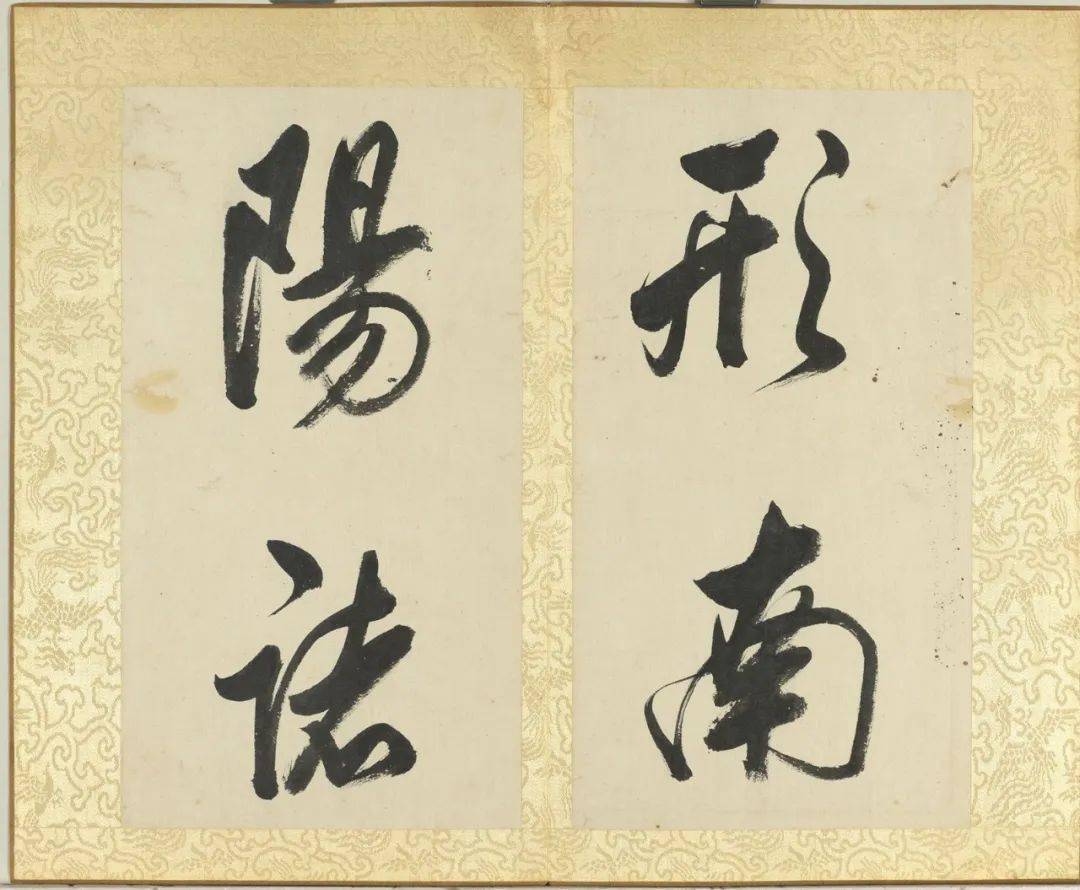 形南
陽諸